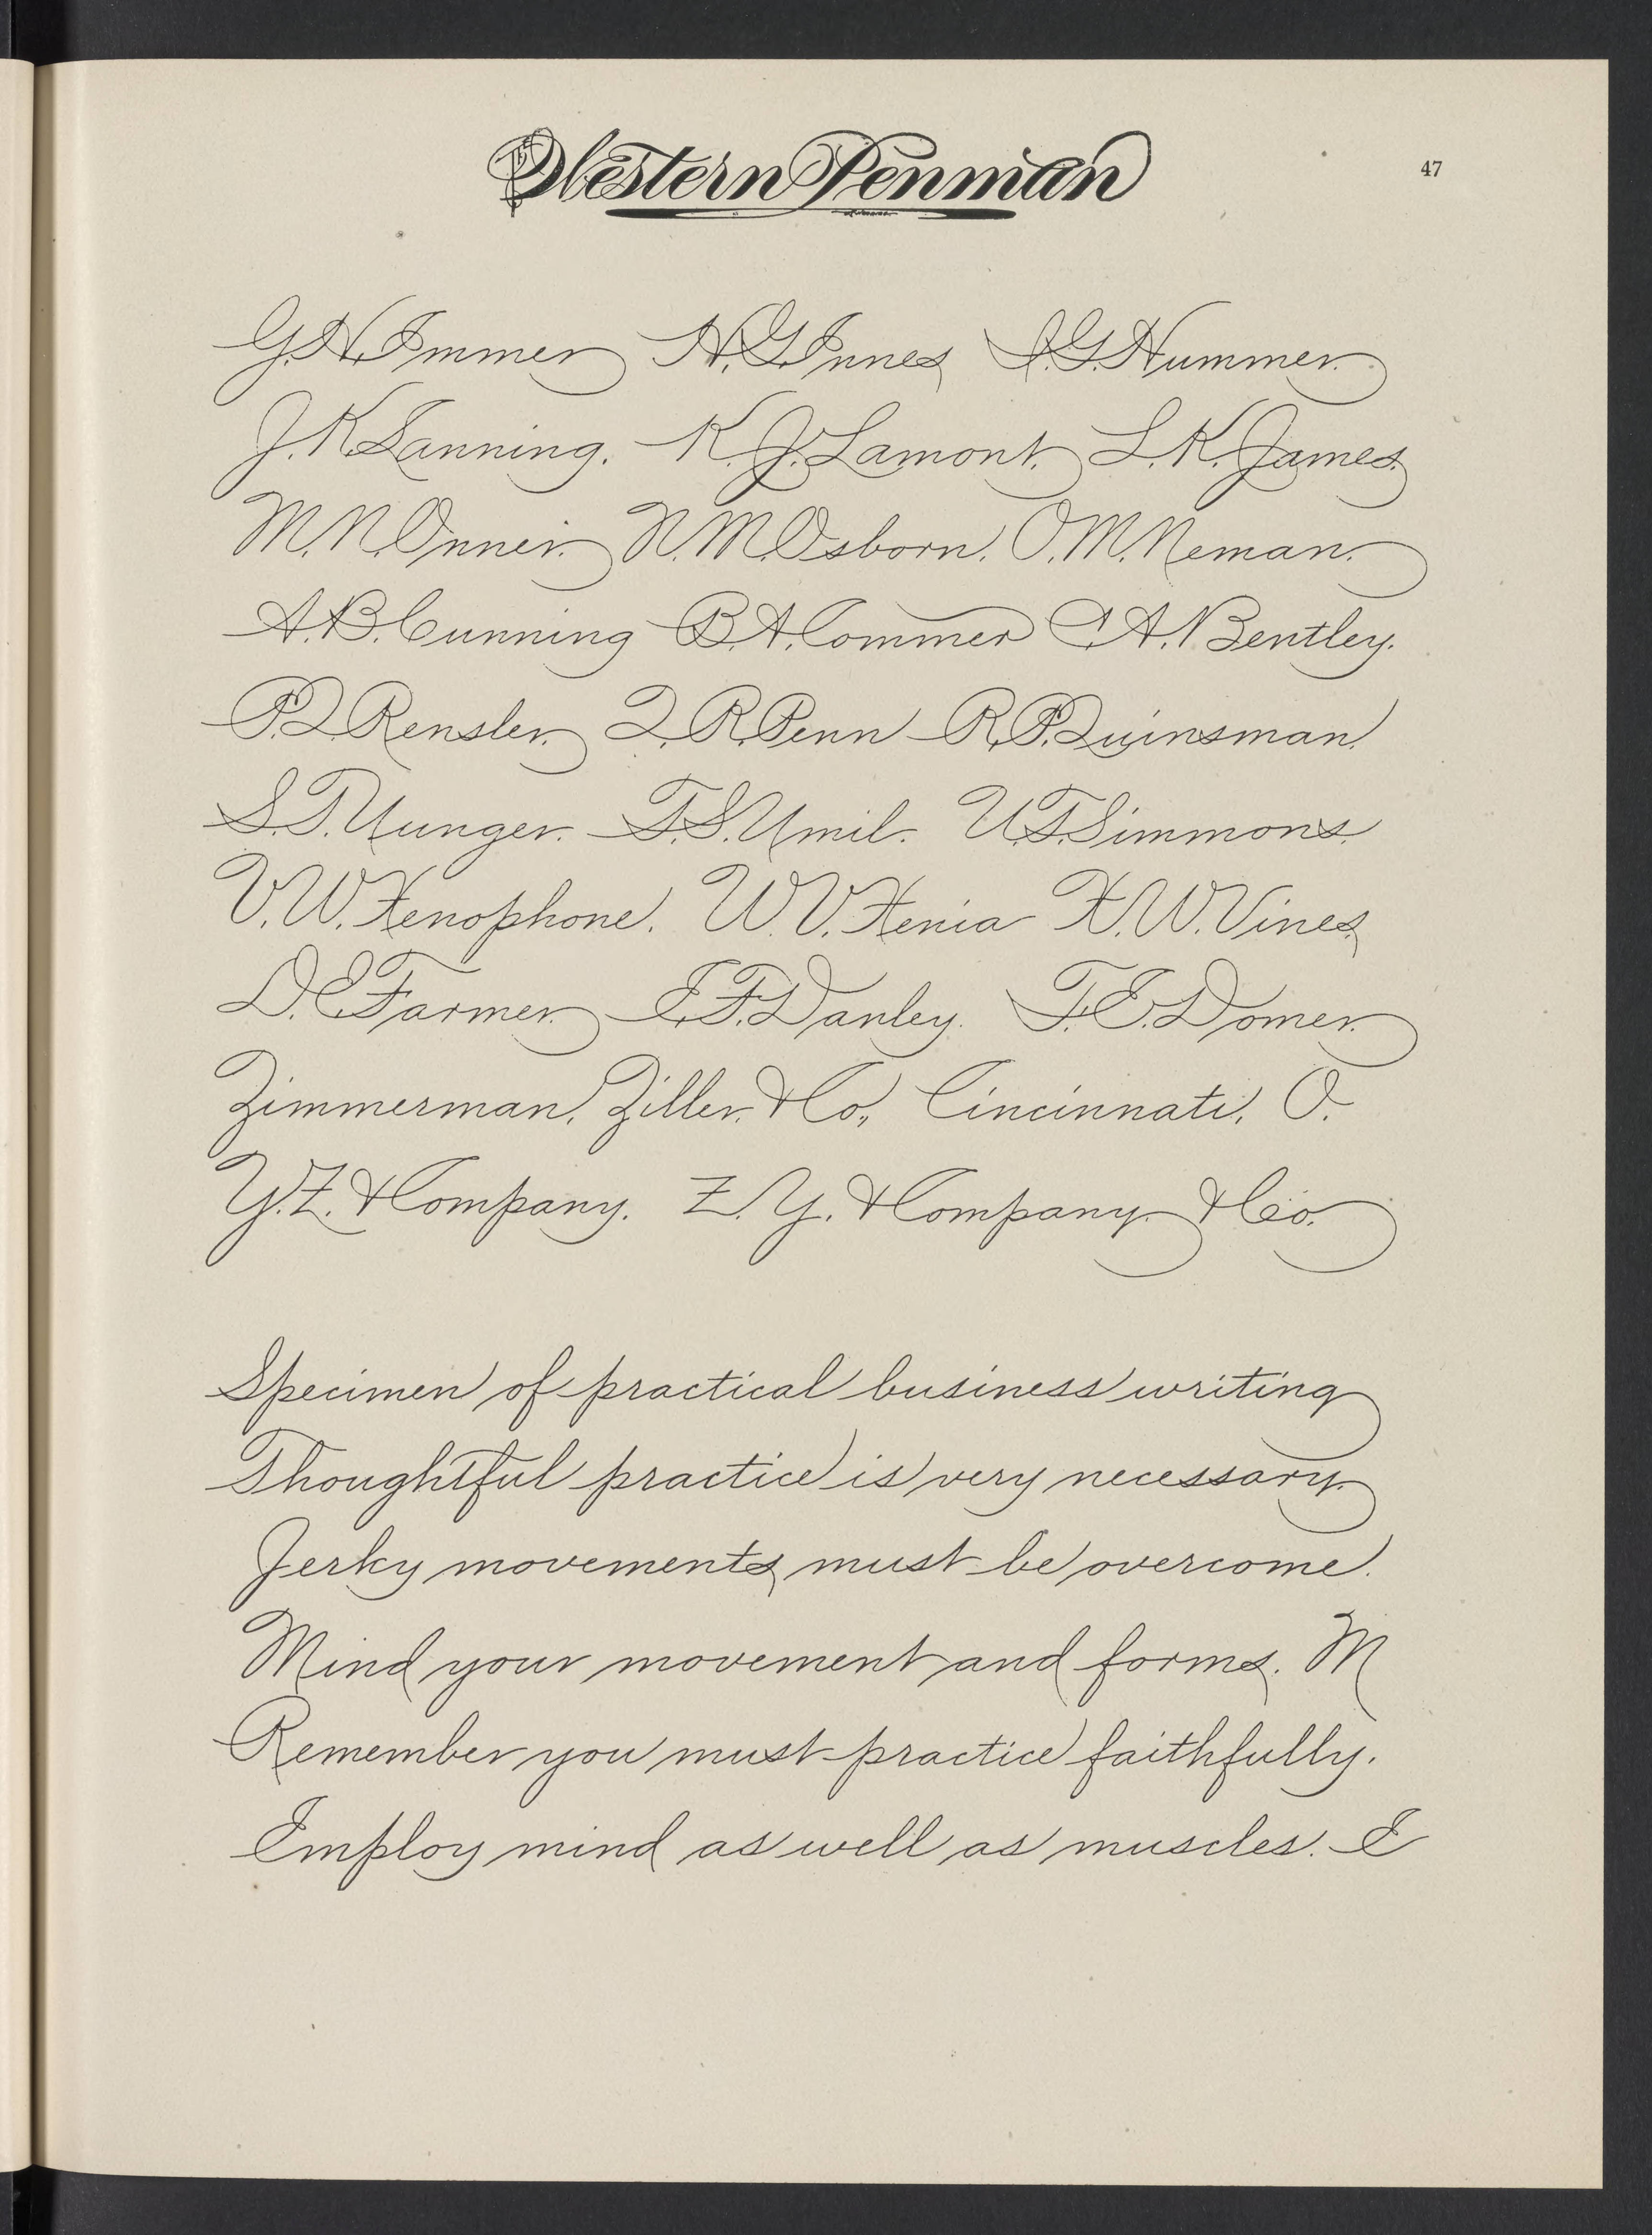 The Western Penman
47
G. H. Immer H. G. Innes I. G. Hummer.
J. K. Lanning. K. J. Lamont. L. K. James.
M. N. Onner. N. M. Osborn. O. M. Neman.
A. B. Cunning B. A. Commer C. A. Bentley.
P. Q. Rensler. Q. R. Penn R. P. Quinsman.
S. T. Uunger. T. S. Umil. U. T. Simmons.
V. W. Xenophone. W. V. Xenia X. W. Vines.
D. E. Farmer. E. F. Danley. F. E. Domer.
Zimmerman, Ziller & Co., Cincinnati, O.
Y. Z. & Company. Z. Y. & Company. & Co.
Specimen of practical business writing
Thoughtful practice is very necessary.
Jerky movements must be overcome.
Mind your movement and forms. M
Remember you must practice faithfully.
Employ mind as well as muscles. E